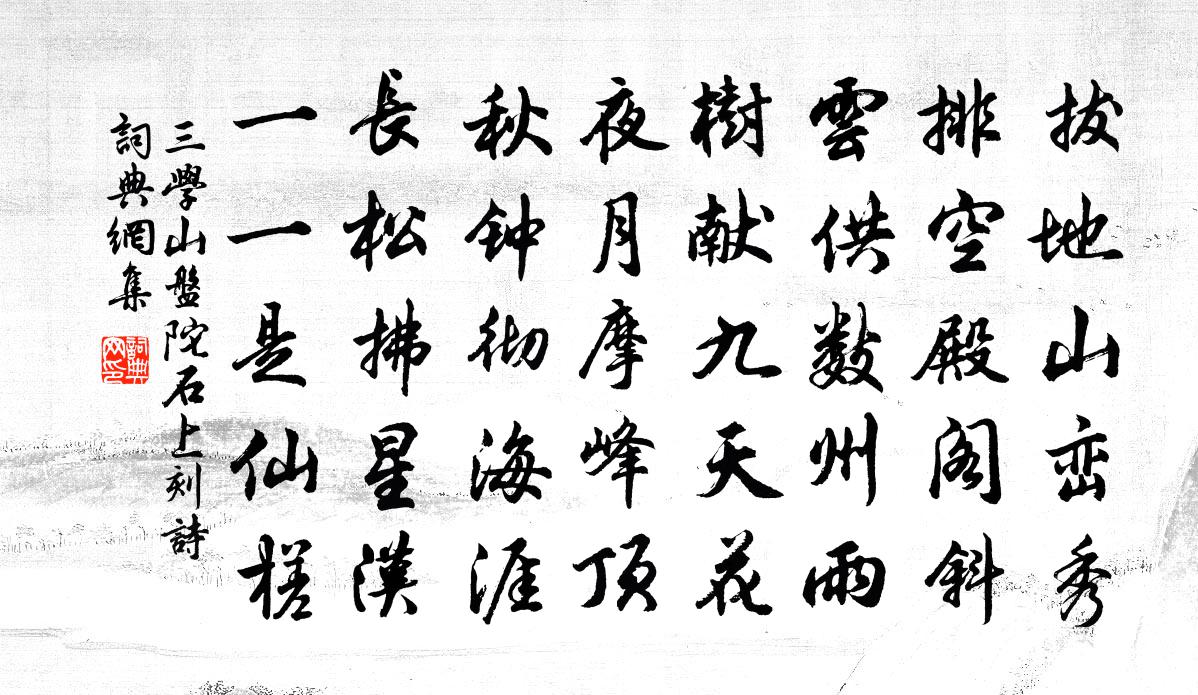 拔地山峦秀
排空殿阁斜
雲供數州雨
樹献九天花
夜月摩峰顶
秋钟彻海涯
長松拂星漢
一一是仙槎
三學山盤陀石上刻詩
詞典網集